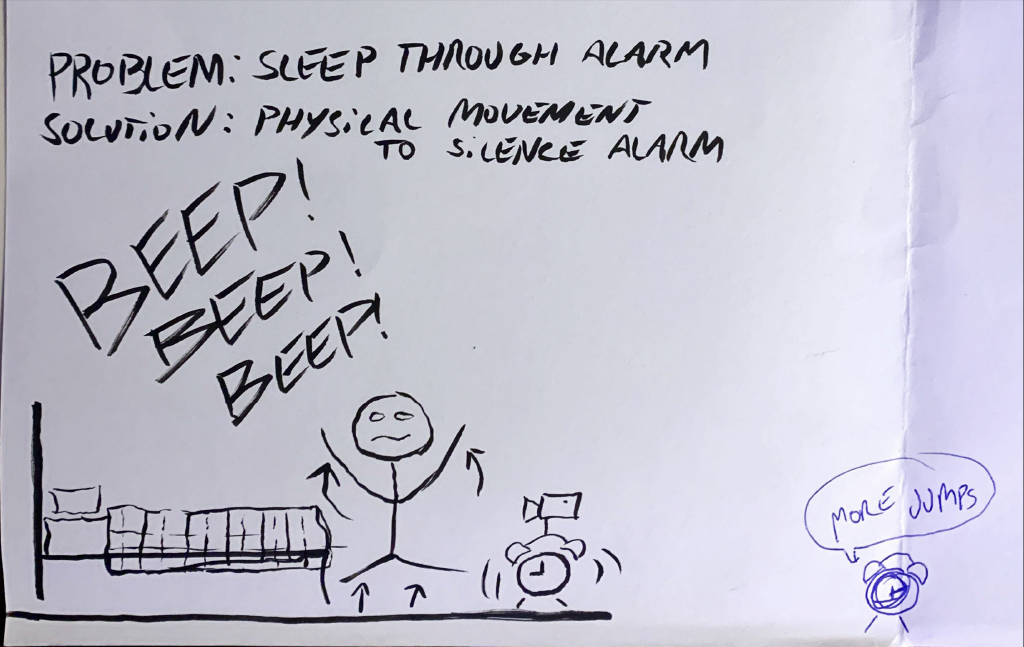 PROBLEM: SLEEP THROUGH ALARM
SOLUTION: PHYSICAL MOVEMENT
TO SILENCE ALARM
BEEP!
BEEP!
BEEP!
MORE JUMPS